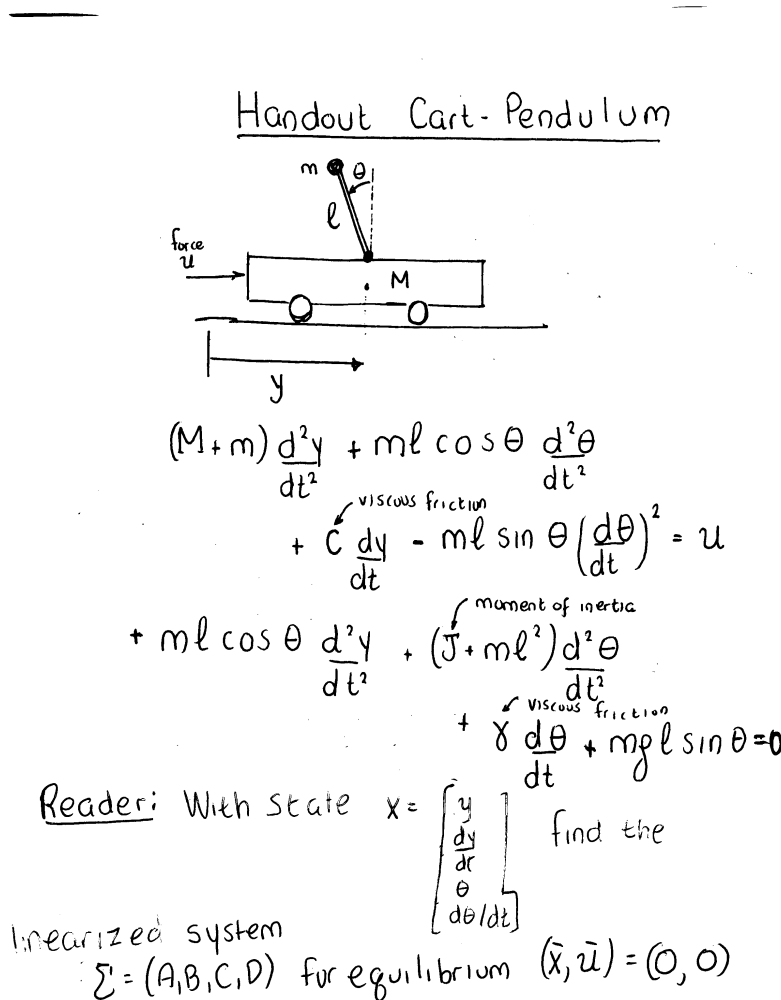 Handout Cart-Pendulum
m θ
l
force
u
M
y
(M+m) d²y/dt² + ml cos θ d²θ/dt²
viscous friction
+ C dy/dt - ml sin θ (dθ/dt)² = u
moment of inertia
+ ml cos θ d²y/dt² + (J+ml²) d²θ/dt²
viscous friction
+ γ dθ/dt + mgl sin θ = 0
Reader: With state x = [y dy/dt θ dθ/dt] find the
linearized system
Σ = (A,B,C,D) for equilibrium (x̄,ū) = (0,0)